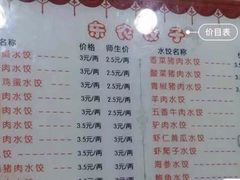 东北饺子
价目表
名称 价格 师生价 水饺名称
肉水饺 3元/两 2.5元/两 香菜猪肉水饺
肉水饺 3元/两 2.5元/两 酸菜猪肉水饺
鸡蛋水饺 3元/两 2.5元/两 青椒猪肉水饺
水饺 3元/两 2.5元/两 羊肉水饺
肉水饺 3元/两 2.5元/两 五香牛肉水饺
肉水饺 3元/两 2.5元/两 驴肉水饺
水饺 3元/两 2.5元/两 虾仁黄瓜水饺
水饺 3.5元/两 3元/两 虾爬子水饺
水饺 3.5元/两 3元/两 海参水饺
猪肉水饺 3.5元/两 3元/两 鲅鱼水饺